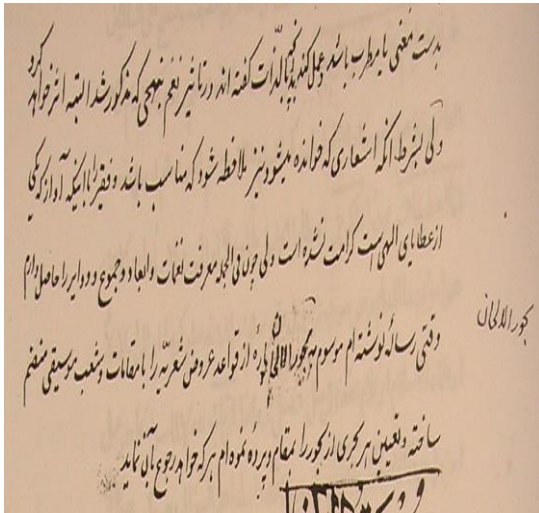 بدست مغنی یا مطرب باشد و عمل کند بدآنچه بالذات گفته اند در تأثیر نغم بنهجی که مذکور شد البته اثر خواهد کرد
ولی بشرط آنکه اشعاری که خوانده میشود نیز ملاحظه شود که مناسب باشد و فقیر را با اینکه آواز که یکی
از عطایای الهی است کرامت نشده است ولی چون فی الجمله معرفت نغمات و ابعاد و جموع و دوایر را حاصل دارم
بحور الالحان
وقتی رساله نوشته ام موسوم به بحور الالحان پاره از قواعد عروض شعریه را با مقامات و شعب موسیقی منضم
ساخته و تعیین هر بحری از بحور را بمقام و پرده نموده ام هر که خواهد رجوع بآن نماید